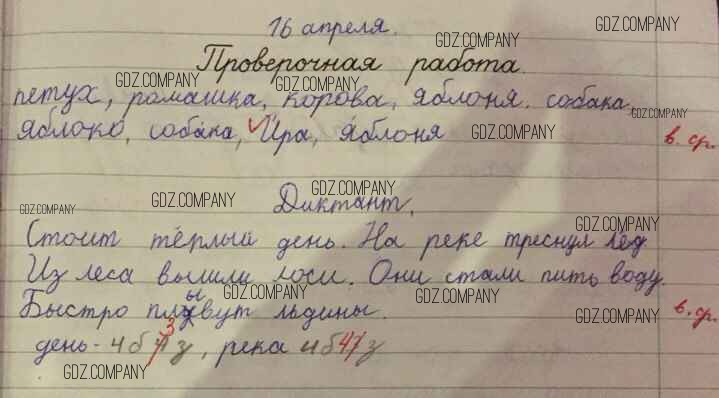 16 апреля.
Проверочная работа.
петух, ромашка, корова, яблоня. собака,
яблоко, собака, Ира, яблоня
в. ср.
Диктант.
Стоит тёплый день. На реке треснул лёд
Из леса вышли лоси. Они стали пить воду.
Быстро плывут льдины.
в. ср.
день - 4б з, река 4б4з
GDZ.COMPANY
GDZ.COMPANY
GDZ.COMPANY
GDZ.COMPANY
GDZ.COMPANY
GDZ.COMPANY
GDZ.COMPANY
GDZ.COMPANY
GDZ.COMPANY
GDZ.COMPANY
GDZ.COMPANY
GDZ.COMPANY
GDZ.COMPANY
GDZ.COMPANY